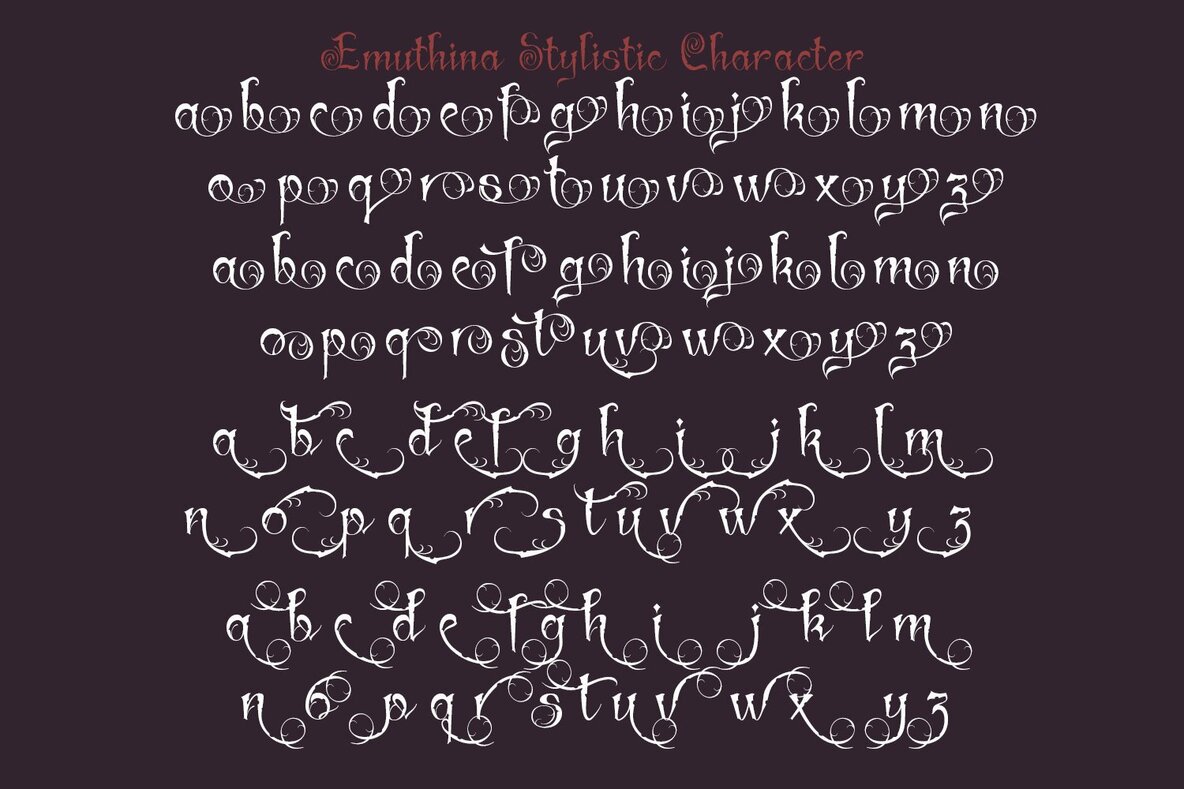 Emuthina Stylistic Character
a b c d e f g h i j k l m n
o p q r s t u v w x y z
a b c d e f g h i j k l m n
o p q r s t u v w x y z
a b c d e f g h i j k l m
n o p q r s t u v w x y z
a b c d e f g h i j k l m
n o p q r s t u v w x y z